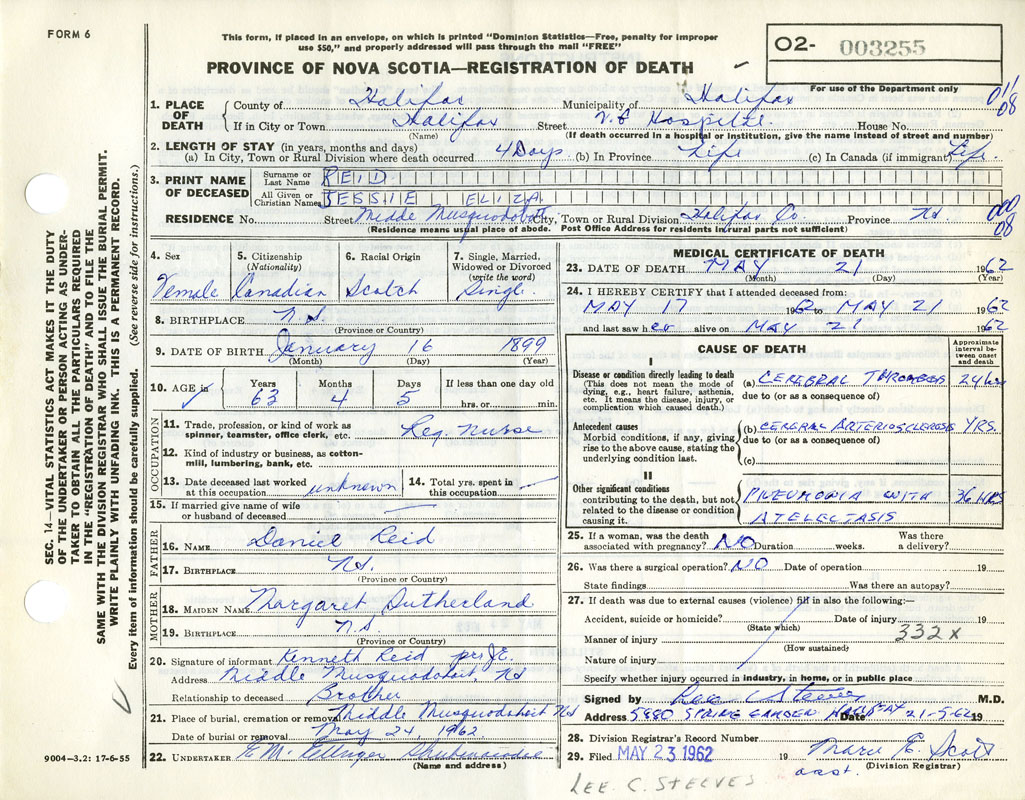 FORM 6
This form, if placed in an envelope, on which is printed "Dominion Statistics—Free, penalty for improper
use $50," and properly addressed will pass through the mail "FREE"
PROVINCE OF NOVA SCOTIA—REGISTRATION OF DEATH
O2- 003255
For use of the Department only
SEC. 14—VITAL STATISTICS ACT MAKES IT THE DUTY
OF THE UNDERTAKER OR PERSON ACTING AS UNDER-
TAKER TO OBTAIN ALL THE PARTICULARS REQUIRED
IN THE "REGISTRATION OF DEATH" AND TO FILE THE
SAME WITH THE DIVISION REGISTRAR WHO SHALL ISSUE THE BURIAL PERMIT.
WRITE PLAINLY WITH UNFADING INK. THIS IS A PERMANENT RECORD.
Every item of information should be carefully supplied. (See reverse side for instructions.)
1. PLACE OF DEATH
County of Halifax Municipality of Halifax
011
08
If in City or Town Halifax Street V.G. Hospital House No.
(Name) (If death occurred in a hospital or institution, give the name instead of street and number)
2. LENGTH OF STAY (in years, months and days)
(a) In City, Town or Rural Division where death occurred 4 Days (b) In Province Life (c) In Canada (if immigrant) Life.
3. PRINT NAME OF DECEASED
Surname or Last Name REID
All Given or Christian Names JESSIE ELIZA
RESIDENCE No. Street Middle Musquodoboit City, Town or Rural Division Halifax Co. Province NS
000
08
(Residence means usual place of abode. Post Office Address for residents in rural parts not sufficient)
4. Sex
Female
5. Citizenship (Nationality)
Canadian
6. Racial Origin
Scotch
7. Single, Married, Widowed or Divorced (write the word)
Single.
8. BIRTHPLACE N.S.
(Province or Country)
9. DATE OF BIRTH January 16 1899
(Month) (Day) (Year)
10. AGE in
Years Months Days If less than one day old
63 4 5 hrs. or min.
OCCUPATION
11. Trade, profession, or kind of work as spinner, teamster, office clerk, etc. Reg. Nurse
12. Kind of industry or business, as cotton-mill, lumbering, bank, etc.
13. Date deceased last worked at this occupation unknown
14. Total yrs. spent in this occupation
15. If married give name of wife or husband of deceased
FATHER
16. NAME Daniel Reid
17. BIRTHPLACE N.S.
(Province or Country)
MOTHER
18. MAIDEN NAME Margaret Sutherland
19. BIRTHPLACE N.S.
(Province or Country)
20. Signature of informant Kenneth Reid per
Address Middle Musquodoboit, NS
Relationship to deceased Brother
21. Place of burial, cremation or removal Middle Musquodoboit NS
Date of burial or removal May 24, 1962
22. UNDERTAKER E M Ettinger Shubenacadie
(Name and address)
9004—3.2: 17-6-55
MEDICAL CERTIFICATE OF DEATH
23. DATE OF DEATH MAY 21 1962
(Month) (Day) (Year)
24. I HEREBY CERTIFY that I attended deceased from:
MAY 17 1962 MAY 21 1962
and last saw her alive on MAY 21 1962
CAUSE OF DEATH
Approximate interval between onset and death
I
Disease or condition directly leading to death
(This does not mean the mode of dying, e.g., heart failure, asthenia, etc. It means the disease, injury, or complication which caused death.)
(a) CEREBRAL THROMBOSIS 24 hrs
due to (or as a consequence of)
Antecedent causes
Morbid conditions, if any, giving rise to the above cause, stating the underlying condition last.
(b) CEREBRAL ARTERIOSCLEROSIS YRS.
due to (or as a consequence of)
(c)
II
Other significant conditions
contributing to the death, but not related to the disease or condition causing it.
PNEUMONIA WITH 36 HRS
ATELECTASIS
25. If a woman, was the death associated with pregnancy? NO Duration weeks. Was there a delivery?
26. Was there a surgical operation? NO Date of operation 19
State findings Was there an autopsy?
27. If death was due to external causes (violence) fill in also the following:—
Accident, suicide or homicide? Date of injury 19
(State which)
332 X
Manner of injury
(How sustained)
Nature of injury
Specify whether injury occurred in industry, in home, or in public place
Signed by Lee C Steeves M.D.
Address 5880 SPRING GARDEN HALIFAX Date 21-5-62 19
28. Division Registrar's Record Number
29. Filed MAY 23 1962 19 Marie E. Scott
asst. (Division Registrar)
LEE C. STEEVES